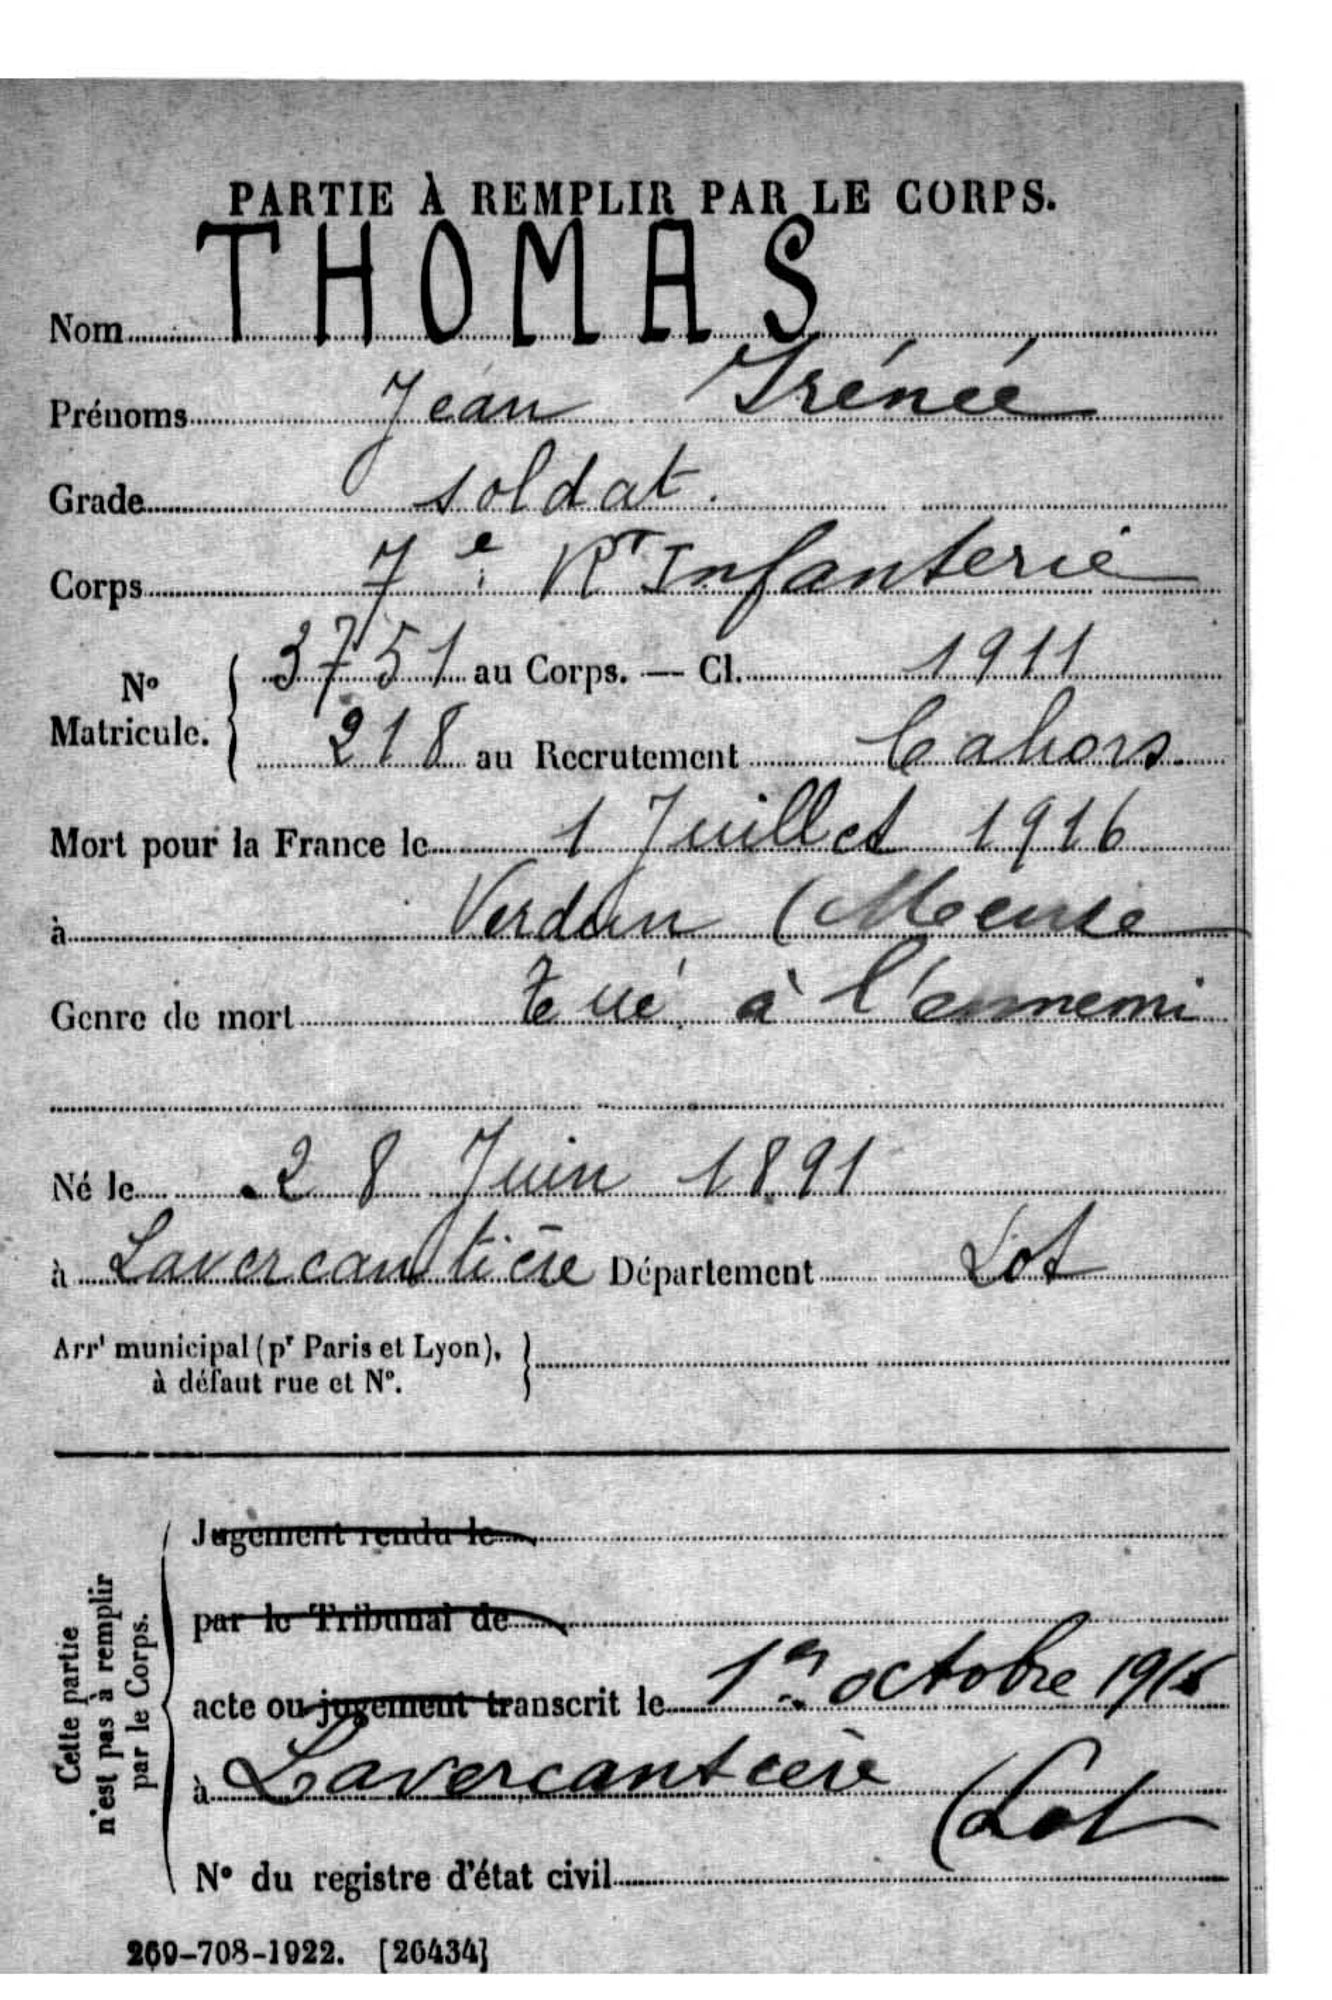 PARTIE À REMPLIR PAR LE CORPS.
Nom THOMAS
Prénoms Jean Irénée
Grade soldat.
Corps 7e Rt Infanterie
No Matricule. { 3751 au Corps. — Cl. 1911
218 au Recrutement Cahors.
Mort pour la France le 1 Juillet 1916
à Verdun (Meuse
Genre de mort tué à l'ennemi
Né le 28 Juin 1891
à Lavercantière Département Lot
Arrt municipal (pr Paris et Lyon), }
à défaut rue et No.
Cette partie
n'est pas à remplir
par le Corps.
Jugement rendu le
par le Tribunal de
acte ou jugement transcrit le 1er octobre 1916
à Lavercantière (Lot
No du registre d'état civil
269-708-1922. [26434]